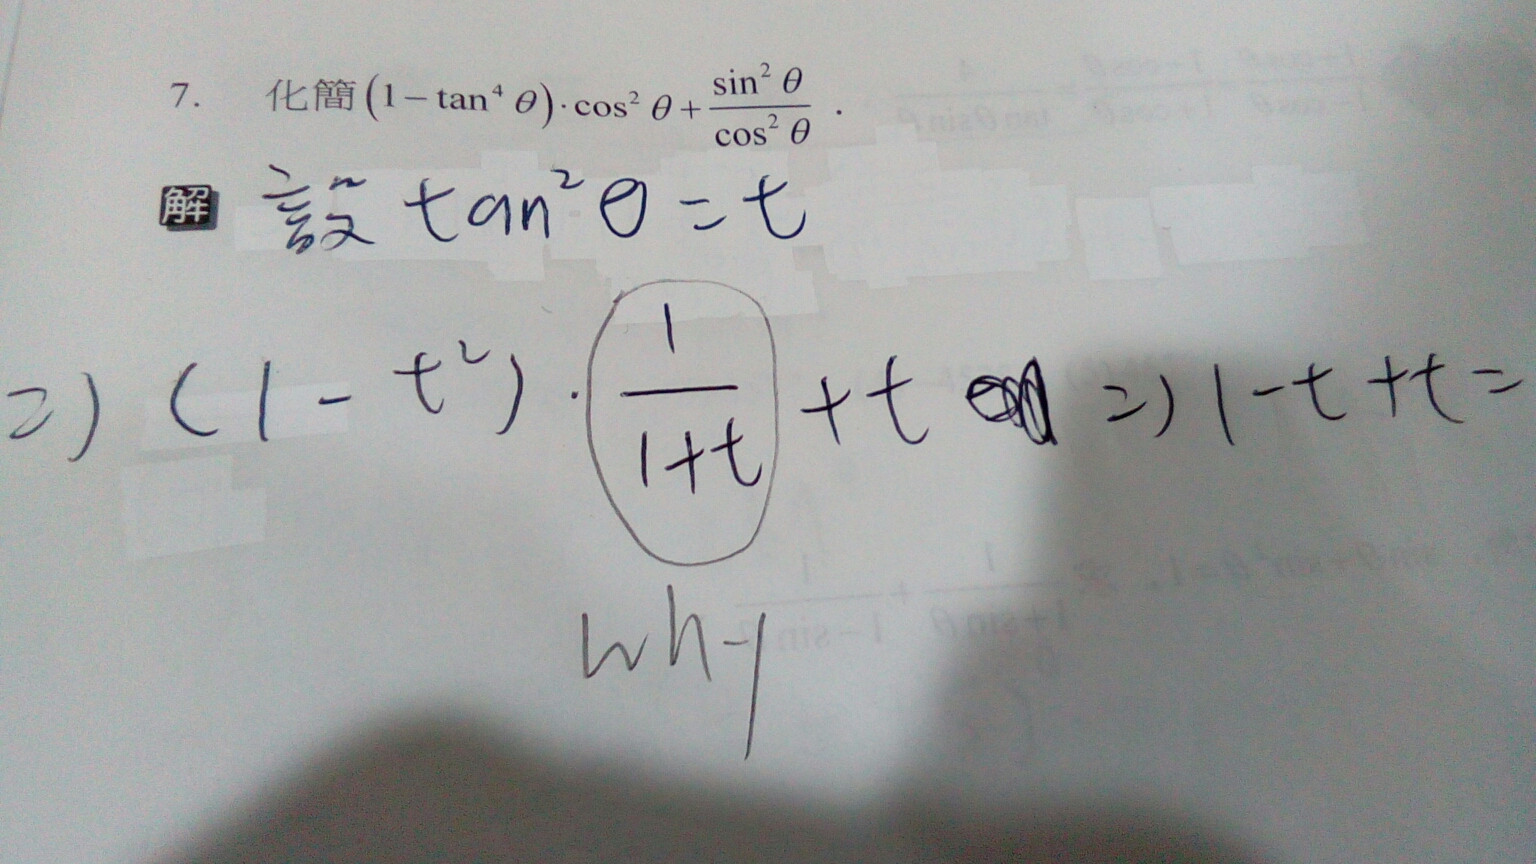 7. 化簡(1-tan⁴ θ)·cos² θ+sin² θ/cos² θ.
解 設 tan² θ = t
=> (1 - t²) · 1/(1+t) + t => 1-t+t=
why